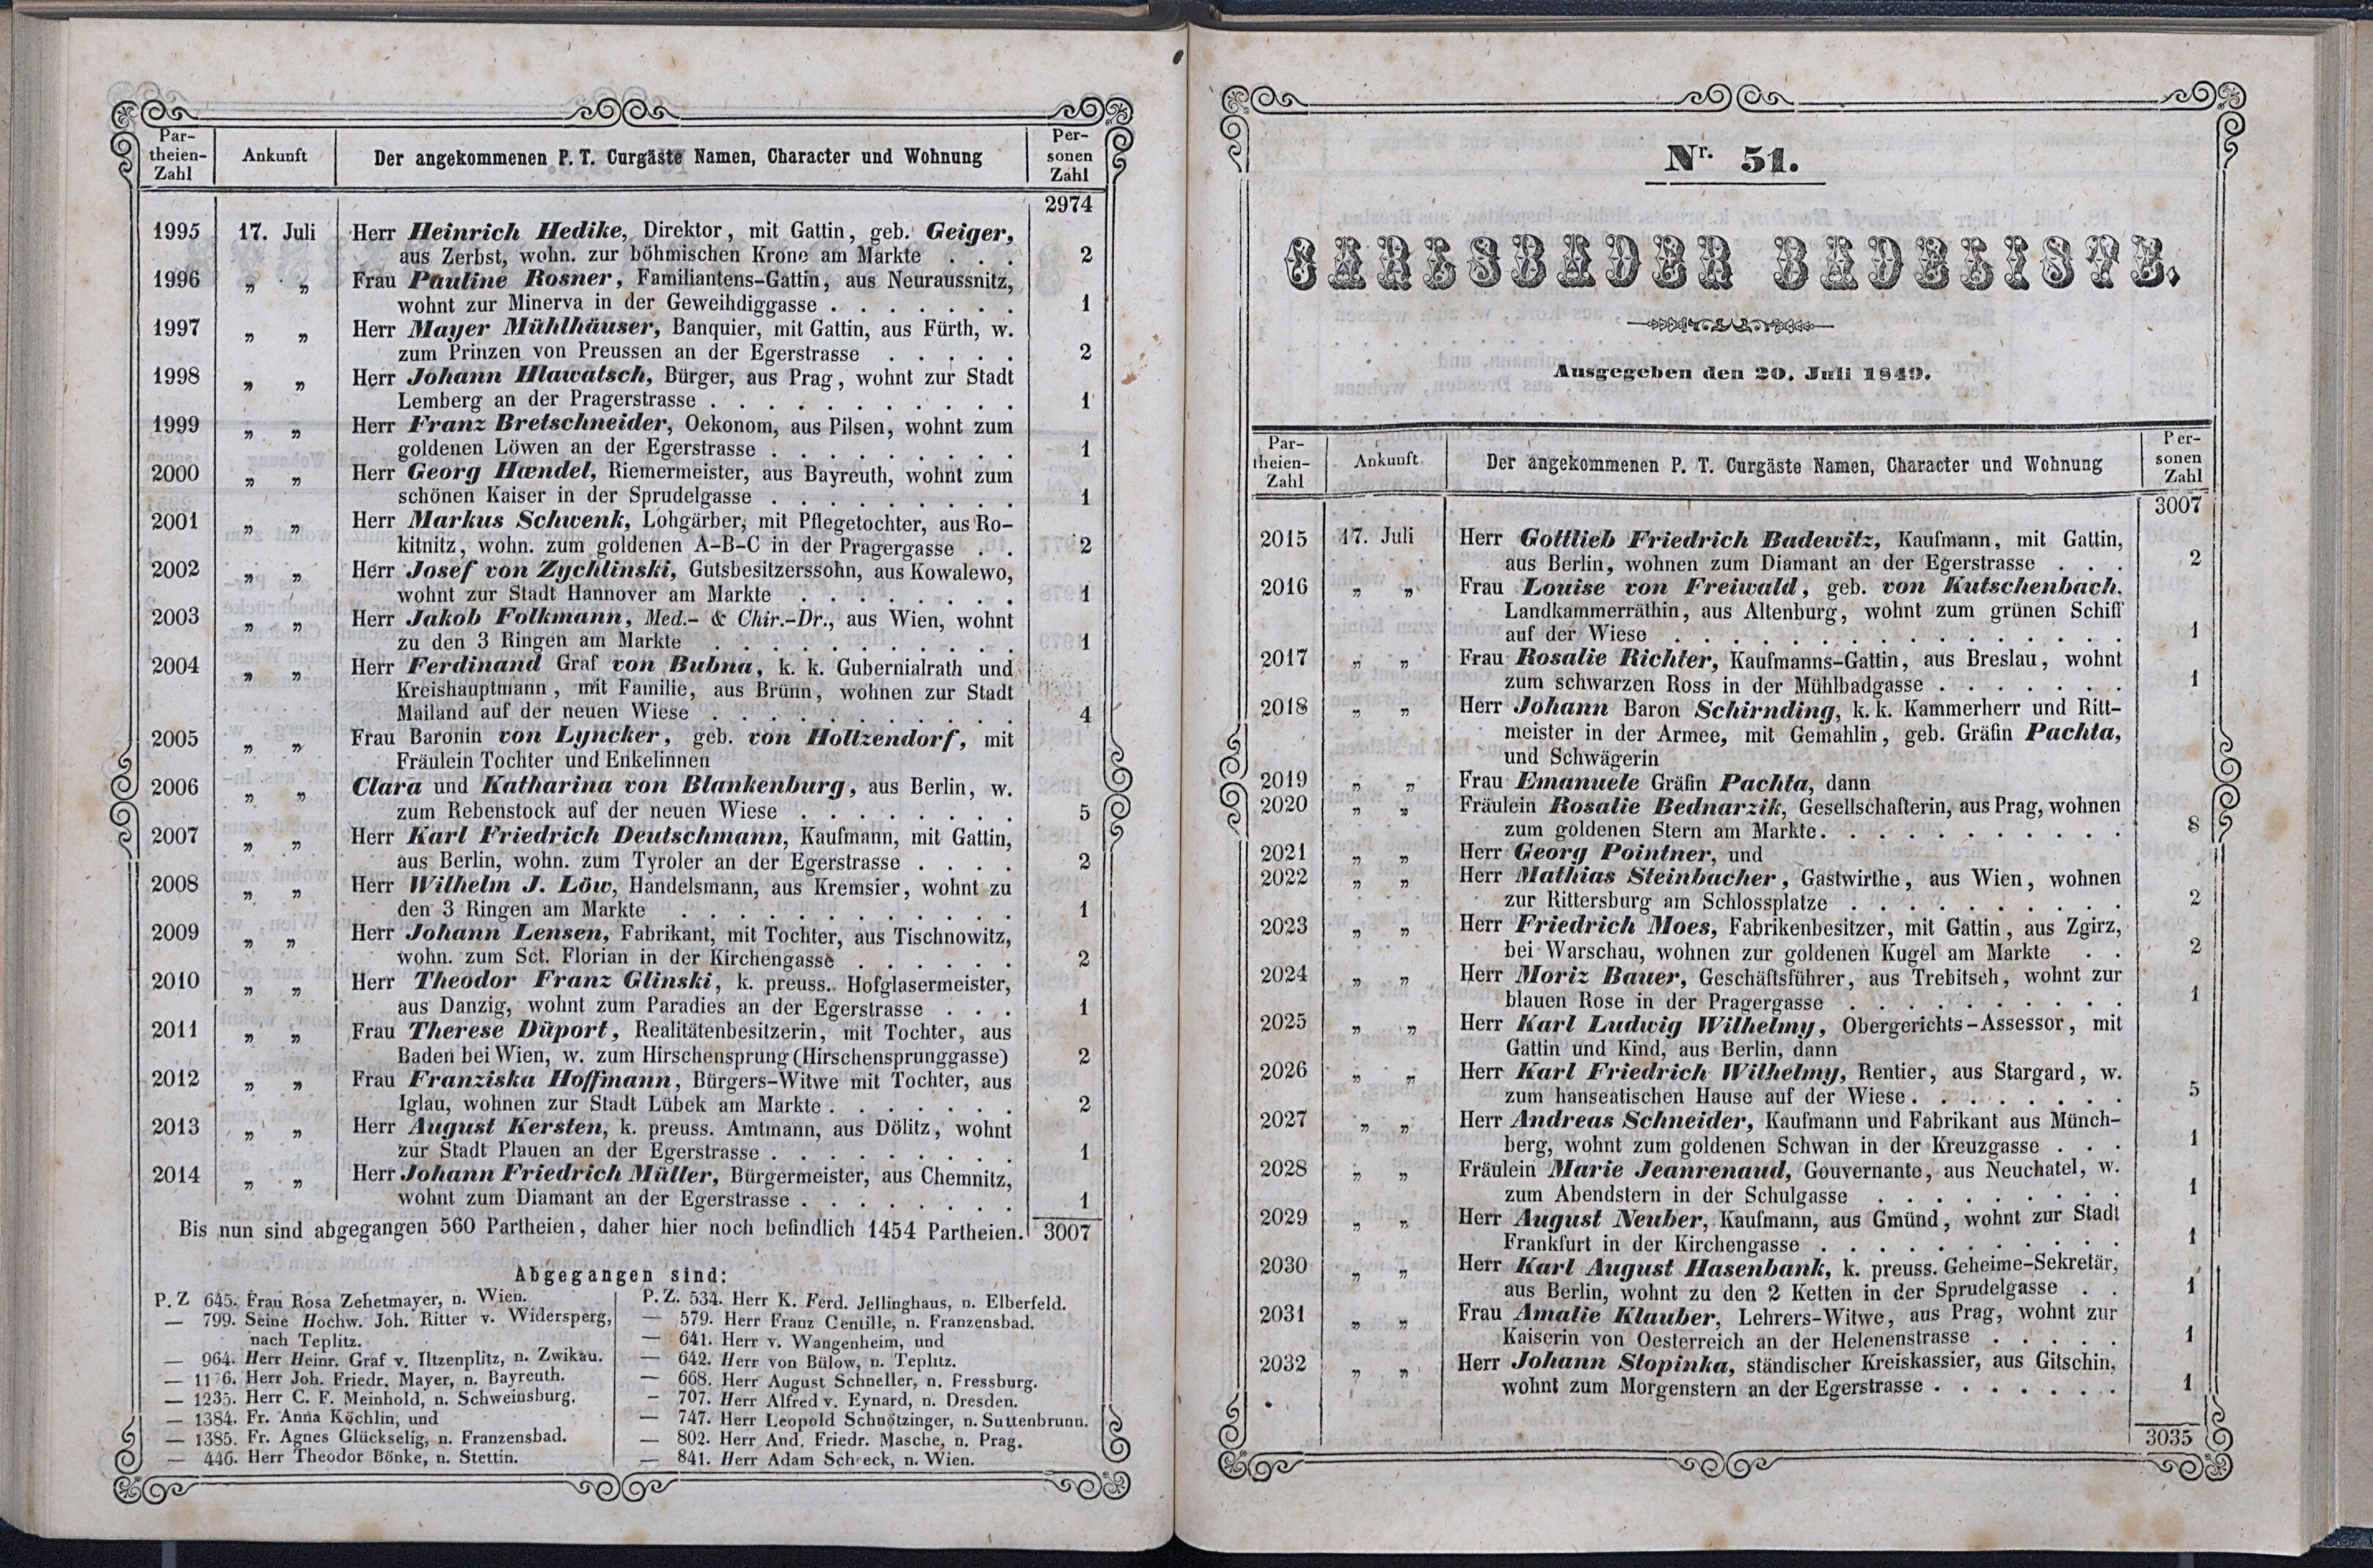 Par-
theien-
Zahl
Ankunft
Der angekommenen P. T. Curgäste Namen, Character und Wohnung
Per-
sonen
Zahl
2974
1995 17. Juli Herr Heinrich Hedike, Direktor, mit Gattin, geb. Geiger,
aus Zerbst, wohn. zur böhmischen Krone am Markte . . . 2
1996 „ „ Frau Pauline Rosner, Familiantens-Gattin, aus Neuraussnitz,
wohnt zur Minerva in der Geweihdiggasse . . . . . . . 1
1997 „ „ Herr Mayer Mühlhäuser, Banquier, mit Gattin, aus Fürth, w.
zum Prinzen von Preussen an der Egerstrasse . . . . . 2
1998 „ „ Herr Johann Hlawatsch, Bürger, aus Prag, wohnt zur Stadt
Lemberg an der Pragerstrasse . . . . . . . . . . . 1
1999 „ „ Herr Franz Bretschneider, Oekonom, aus Pilsen, wohnt zum
goldenen Löwen an der Egerstrasse . . . . . . . . . 1
2000 „ „ Herr Georg Hændel, Riemermeister, aus Bayreuth, wohnt zum
schönen Kaiser in der Sprudelgasse . . . . . . . . . 1
2001 „ „ Herr Markus Schwenk, Lohgärber, mit Pflegetochter, aus Ro-
kitnitz, wohn. zum goldenen A-B-C in der Pragergasse . . 2
2002 „ „ Herr Josef von Zychlinski, Gutsbesitzerssohn, aus Kowalewo,
wohnt zur Stadt Hannover am Markte . . . . . . . . 1
2003 „ „ Herr Jakob Folkmann, Med.- & Chir.-Dr., aus Wien, wohnt
zu den 3 Ringen am Markte . . . . . . . . . . . 1
2004 „ „ Herr Ferdinand Graf von Bubna, k. k. Gubernialrath und
Kreishauptmann, mit Familie, aus Brünn, wohnen zur Stadt
Mailand auf der neuen Wiese . . . . . . . . . . . 4
2005 „ „ Frau Baronin von Lyncker, geb. von Holtzendorf, mit
Fräulein Tochter und Enkelinnen
2006 „ „ Clara und Katharina von Blankenburg, aus Berlin, w.
zum Rebenstock auf der neuen Wiese . . . . . . . . 5
2007 „ „ Herr Karl Friedrich Deutschmann, Kaufmann, mit Gattin,
aus Berlin, wohn. zum Tyroler an der Egerstrasse . . . . 2
2008 „ „ Herr Wilhelm J. Löw, Handelsmann, aus Kremsier, wohnt zu
den 3 Ringen am Markte . . . . . . . . . . . . 1
2009 „ „ Herr Johann Lensen, Fabrikant, mit Tochter, aus Tischnowitz,
wohn. zum Sct. Florian in der Kirchengasse . . . . . . 2
2010 „ „ Herr Theodor Franz Glinski, k. preuss. Hofglasermeister,
aus Danzig, wohnt zum Paradies an der Egerstrasse . . . 1
2011 „ „ Frau Therese Düport, Realitätenbesitzerin, mit Tochter, aus
Baden bei Wien, w. zum Hirschensprung (Hirschensprunggasse) 2
2012 „ „ Frau Franziska Hoffmann, Bürgers-Witwe mit Tochter, aus
Iglau, wohnen zur Stadt Lübek am Markte . . . . . . . 2
2013 „ „ Herr August Kersten, k. preuss. Amtmann, aus Dölitz, wohnt
zur Stadt Plauen an der Egerstrasse . . . . . . . . . 1
2014 „ „ Herr Johann Friedrich Müller, Bürgermeister, aus Chemnitz,
wohnt zum Diamant an der Egerstrasse . . . . . . . . 1
Bis nun sind abgegangen 560 Partheien, daher hier noch befindlich 1454 Partheien. 3007
Abgegangen sind:
P. Z 645. Frau Rosa Zehetmayer, n. Wien.
— 799. Seine Hochw. Joh. Ritter v. Widersperg,
nach Teplitz.
— 964. Herr Heinr. Graf v. Iltzenplitz, n. Zwikau.
— 1176. Herr Joh. Friedr. Mayer, n. Bayreuth.
— 1235. Herr C. F. Meinhold, n. Schweinsburg.
— 1384. Fr. Anna Köchlin, und
— 1385. Fr. Agnes Glückselig, n. Franzensbad.
— 446. Herr Theodor Bönke, n. Stettin.
P. Z. 534. Herr K. Ferd. Jellinghaus, n. Elberfeld.
— 579. Herr Franz Centille, n. Franzensbad.
— 641. Herr v. Wangenheim, und
— 642. Herr von Bülow, n. Teplitz.
— 668. Herr August Schneller, n. Pressburg.
— 707. Herr Alfred v. Eynard, n. Dresden.
— 747. Herr Leopold Schnötzinger, n. Suttenbrunn.
— 802. Herr And. Friedr. Masche, n. Prag.
— 841. Herr Adam Schreck, n. Wien.
Nr. 51.
CARLSBADER BADELISTE.
Ausgegeben den 20. Juli 1849.
Par-
theien-
Zahl
Ankunft
Der angekommenen P. T. Curgäste Namen, Character und Wohnung
Per-
sonen
Zahl
3007
2015 17. Juli Herr Gottlieb Friedrich Badewitz, Kaufmann, mit Gattin,
aus Berlin, wohnen zum Diamant an der Egerstrasse . . . 2
2016 „ „ Frau Louise von Freiwald, geb. von Kutschenbach,
Landkammerräthin, aus Altenburg, wohnt zum grünen Schiff
auf der Wiese . . . . . . . . . . . . . . . . 1
2017 „ „ Frau Rosalie Richter, Kaufmanns-Gattin, aus Breslau, wohnt
zum schwarzen Ross in der Mühlbadgasse . . . . . . . 1
2018 „ „ Herr Johann Baron Schirnding, k. k. Kammerherr und Ritt-
meister in der Armee, mit Gemahlin, geb. Gräfin Pachta,
und Schwägerin
2019 „ „ Frau Emanuele Gräfin Pachta, dann
2020 „ „ Fräulein Rosalie Bednarzik, Gesellschafterin, aus Prag, wohnen
zum goldenen Stern am Markte. . . . . . . . . . . 8
2021 „ „ Herr Georg Pointner, und
2022 „ „ Herr Mathias Steinbacher, Gastwirthe, aus Wien, wohnen
zur Rittersburg am Schlossplatze . . . . . . . . . . 2
2023 „ „ Herr Friedrich Moes, Fabrikenbesitzer, mit Gattin, aus Zgirz,
bei Warschau, wohnen zur goldenen Kugel am Markte . . 2
2024 „ „ Herr Moriz Bauer, Geschäftsführer, aus Trebitsch, wohnt zur
blauen Rose in der Pragergasse . . . . . . . . . . 1
2025 „ „ Herr Karl Ludwig Wilhelmy, Obergerichts-Assessor, mit
Gattin und Kind, aus Berlin, dann
2026 „ „ Herr Karl Friedrich Wilhelmy, Rentier, aus Stargard, w.
zum hanseatischen Hause auf der Wiese . . . . . . . . 5
2027 „ „ Herr Andreas Schneider, Kaufmann und Fabrikant aus Münch-
berg, wohnt zum goldenen Schwan in der Kreuzgasse . . . 1
2028 „ „ Fräulein Marie Jeanrenaud, Gouvernante, aus Neuchatel, w.
zum Abendstern in der Schulgasse . . . . . . . . . 1
2029 „ „ Herr August Neuber, Kaufmann, aus Gmünd, wohnt zur Stadt
Frankfurt in der Kirchengasse . . . . . . . . . . . 1
2030 „ „ Herr Karl August Hasenbank, k. preuss. Geheime-Sekretär,
aus Berlin, wohnt zu den 2 Ketten in der Sprudelgasse . . 1
2031 „ „ Frau Amalie Klauber, Lehrers-Witwe, aus Prag, wohnt zur
Kaiserin von Oesterreich an der Helenenstrasse . . . . . 1
2032 „ „ Herr Johann Stopinka, ständischer Kreiskassier, aus Gitschin,
wohnt zum Morgenstern an der Egerstrasse . . . . . . . 1
3035